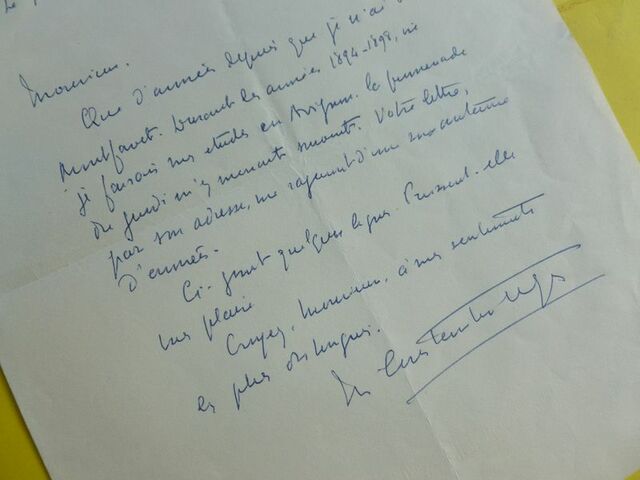 Monsieur.
Que d'années depuis que je n'ai
Montfavet. Durant les années 1894-1898, où
je faisais mes études en Avignon. la promenade
du jeudi m'y menait souvent. Votre lettre,
par son adresse, me rajeunit d'une soixantaine
d'années.
Ci-joint quelques lignes. Puissent-elles
vous plaire
Croyez, Monsieur, à mes sentiments
les plus distingués.